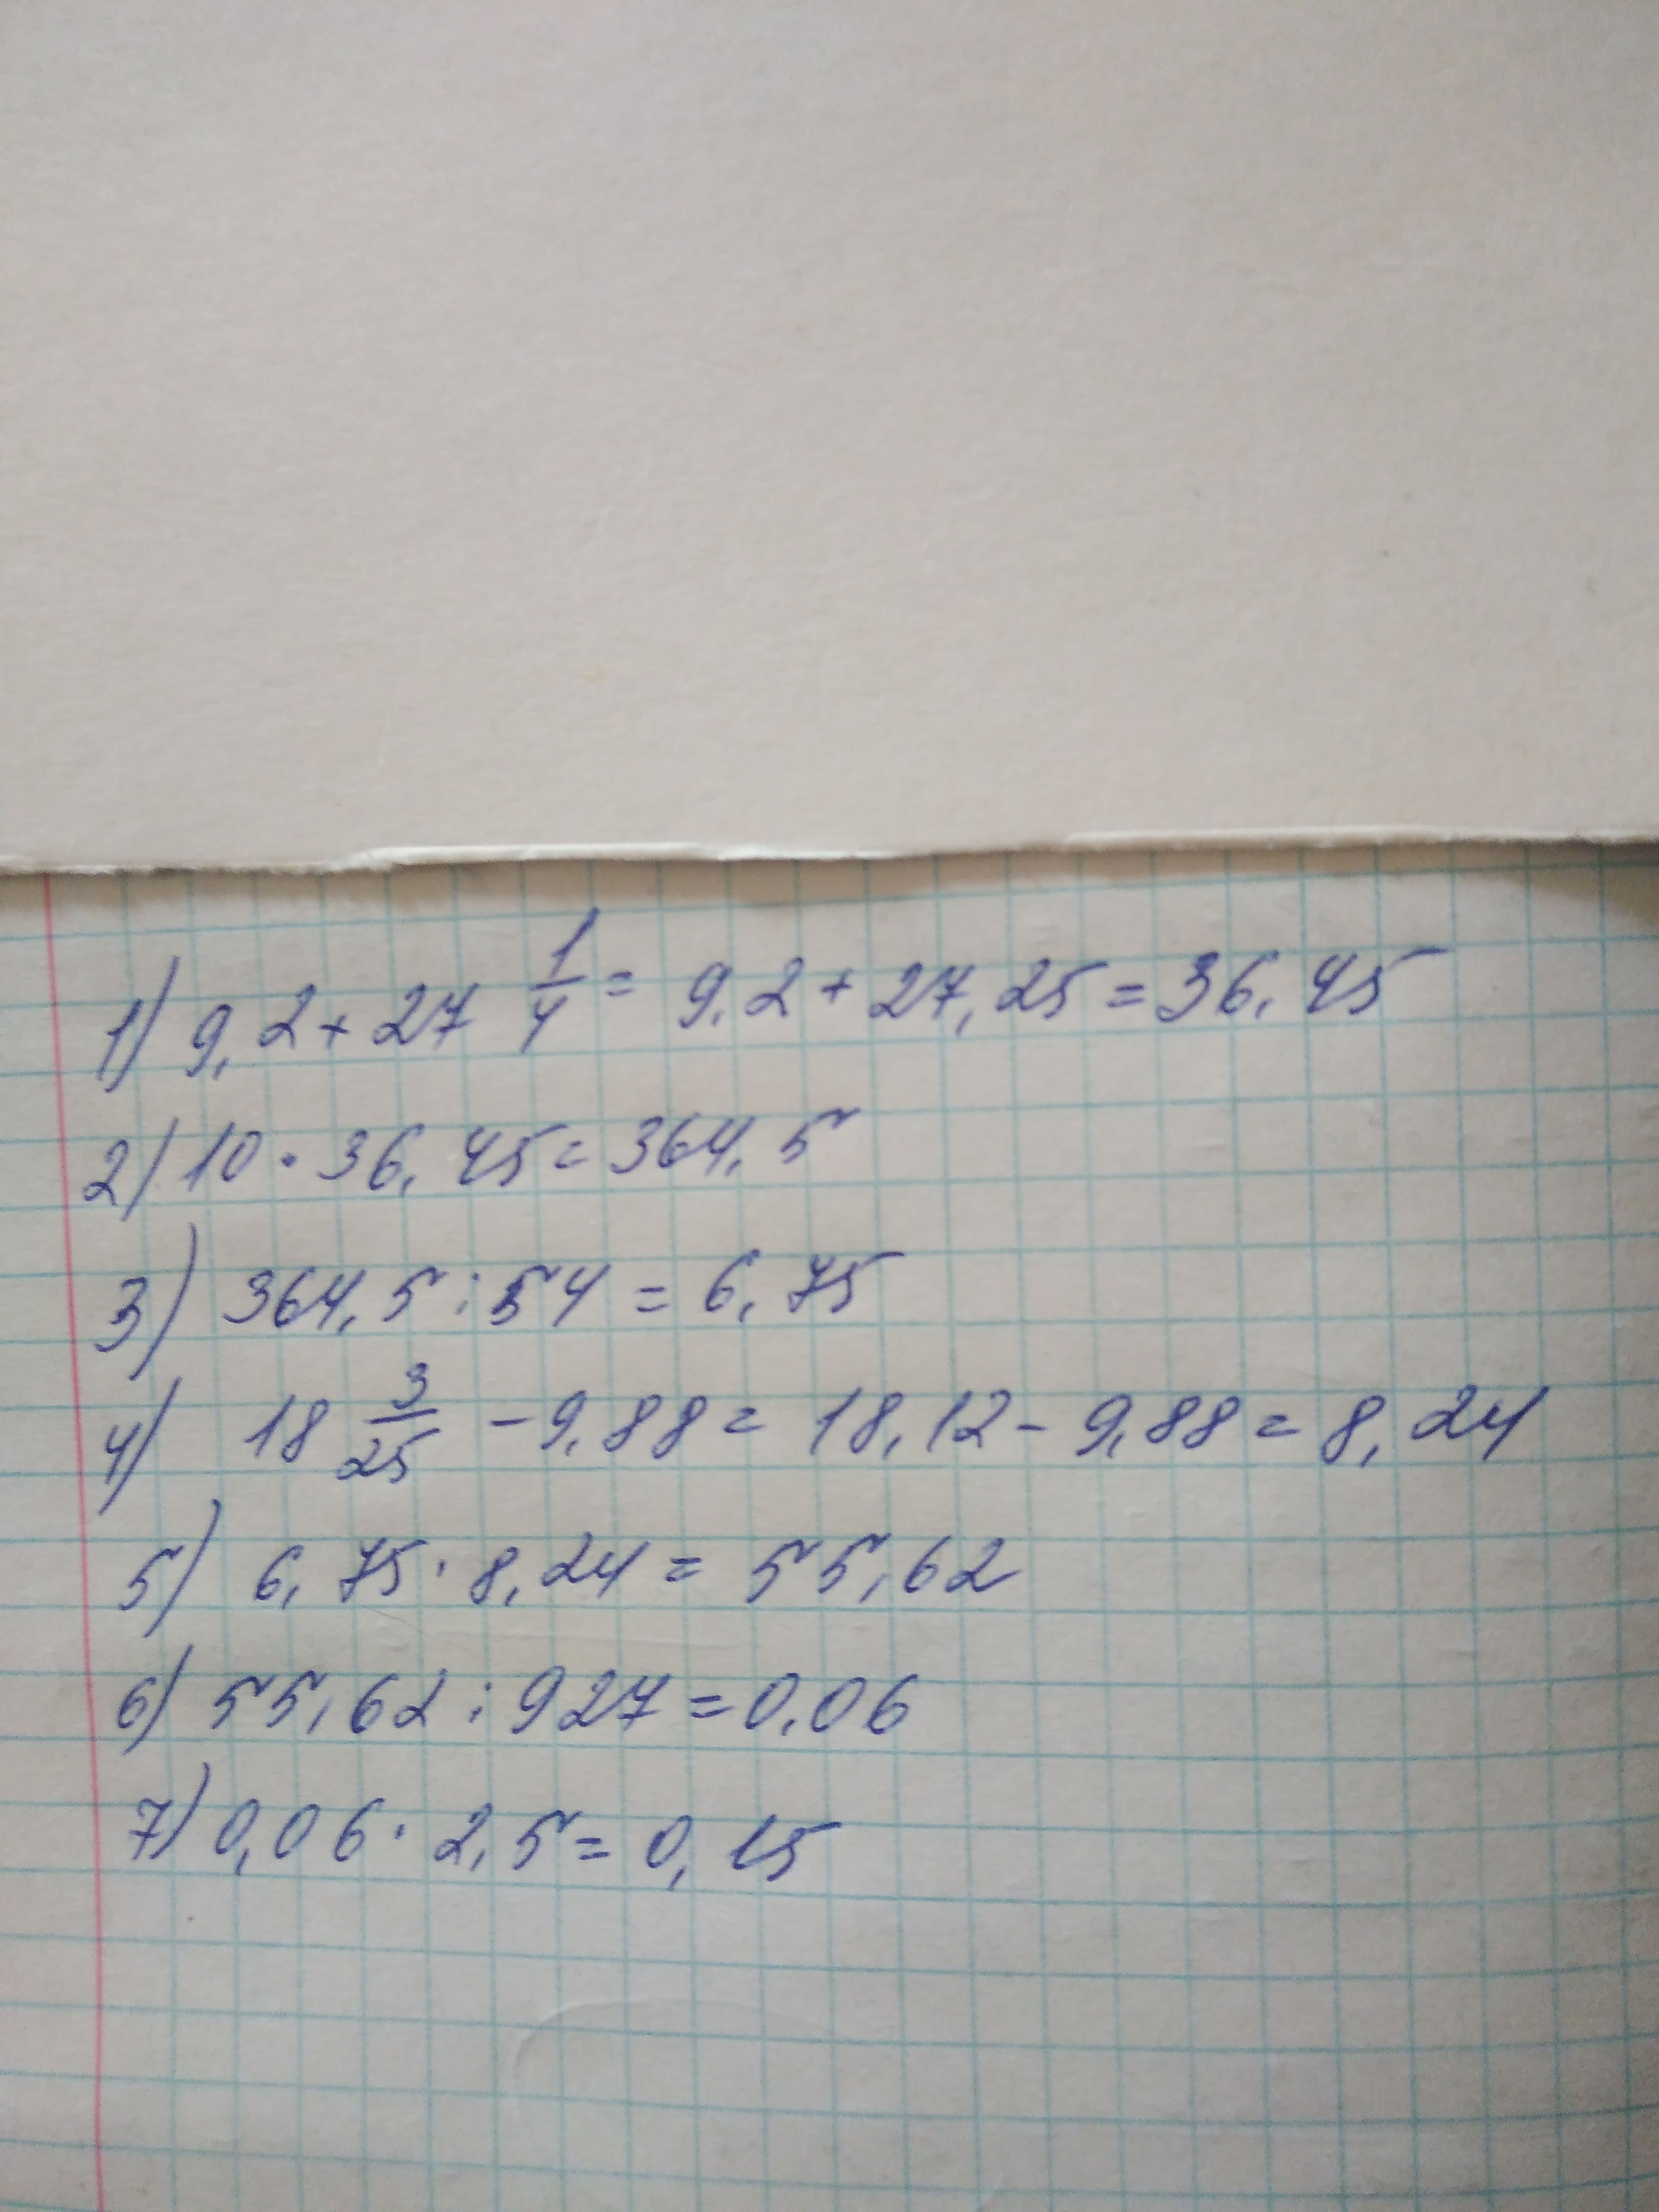 1) 9,2 + 27 1/4 = 9,2 + 27,25 = 36,45
2) 10 · 36,45 = 364,5
3) 364,5 : 54 = 6,75
4) 18 3/25 - 9,88 = 18,12 - 9,88 = 8,24
5) 6,75 · 8,24 = 55,62
6) 55,62 : 927 = 0,06
7) 0,06 · 2,5 = 0,15